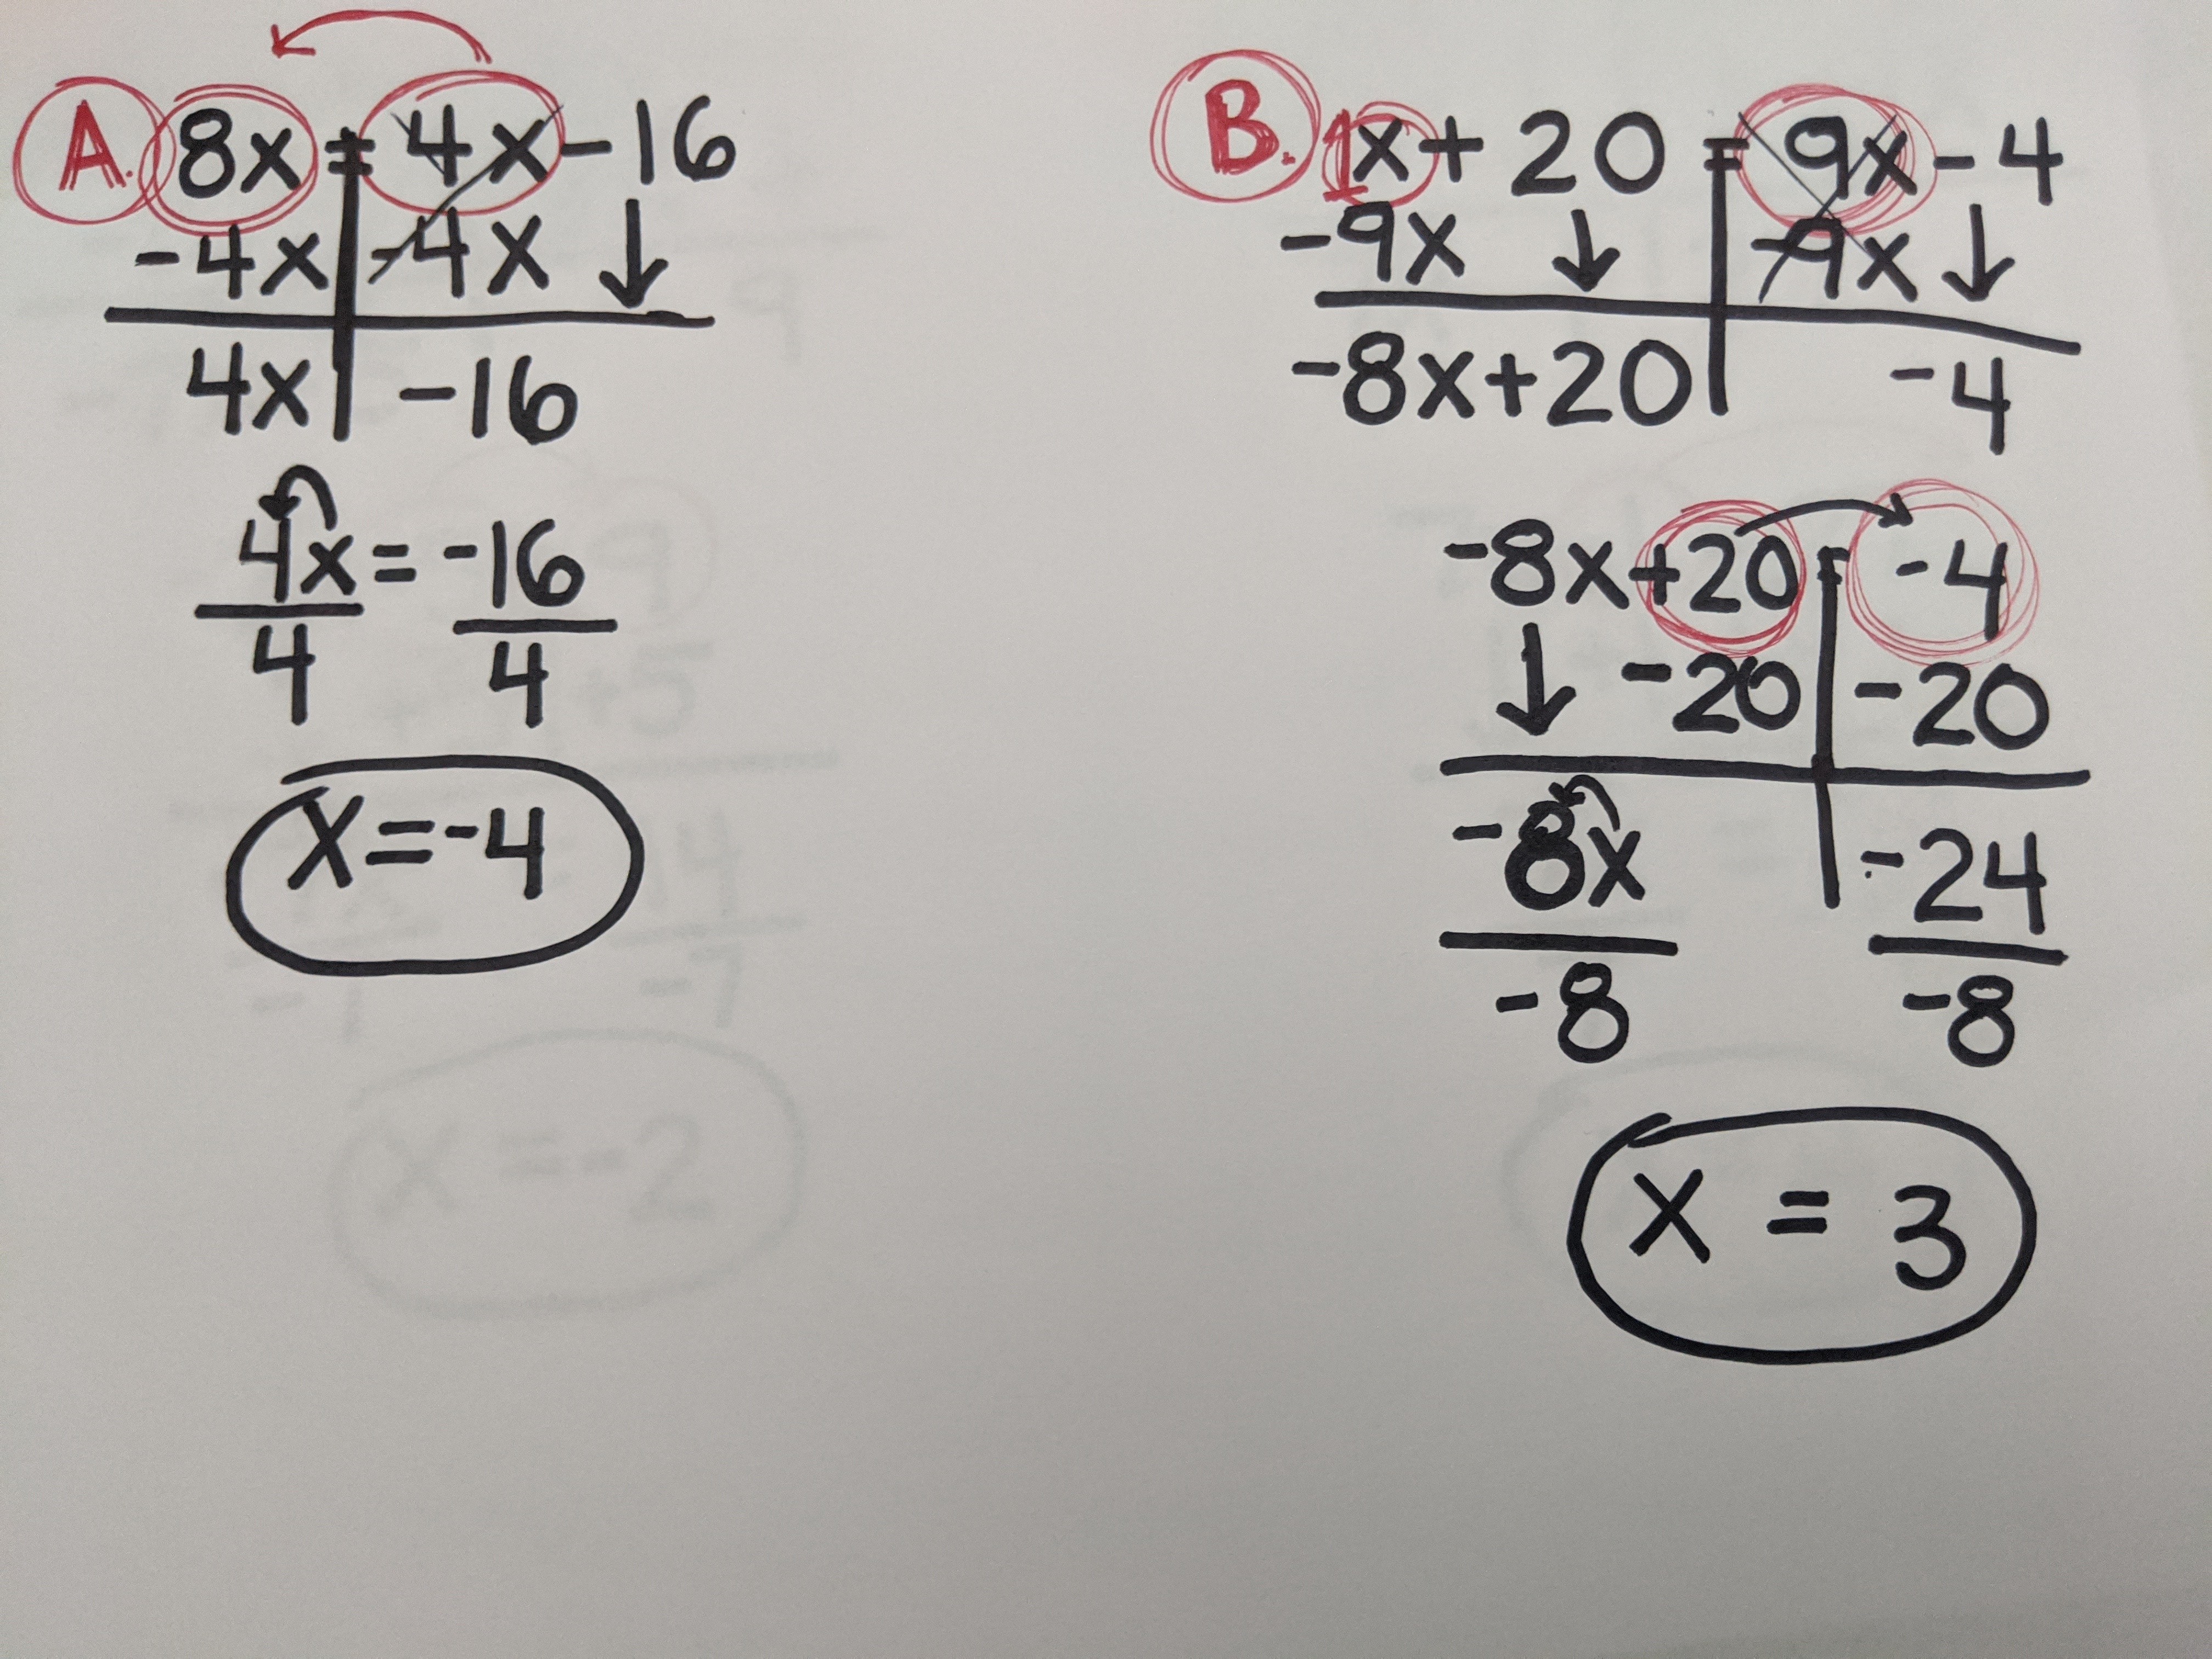 A. 8x = 4x - 16
-4x -4x ↓
4x -16
4x = -16
4 4
x = -4
B. 1x + 20 = 9x - 4
-9x ↓ -9x ↓
-8x + 20 -4
-8x + 20 = -4
↓ -20 -20
-8x -24
-8 -8
x = 3